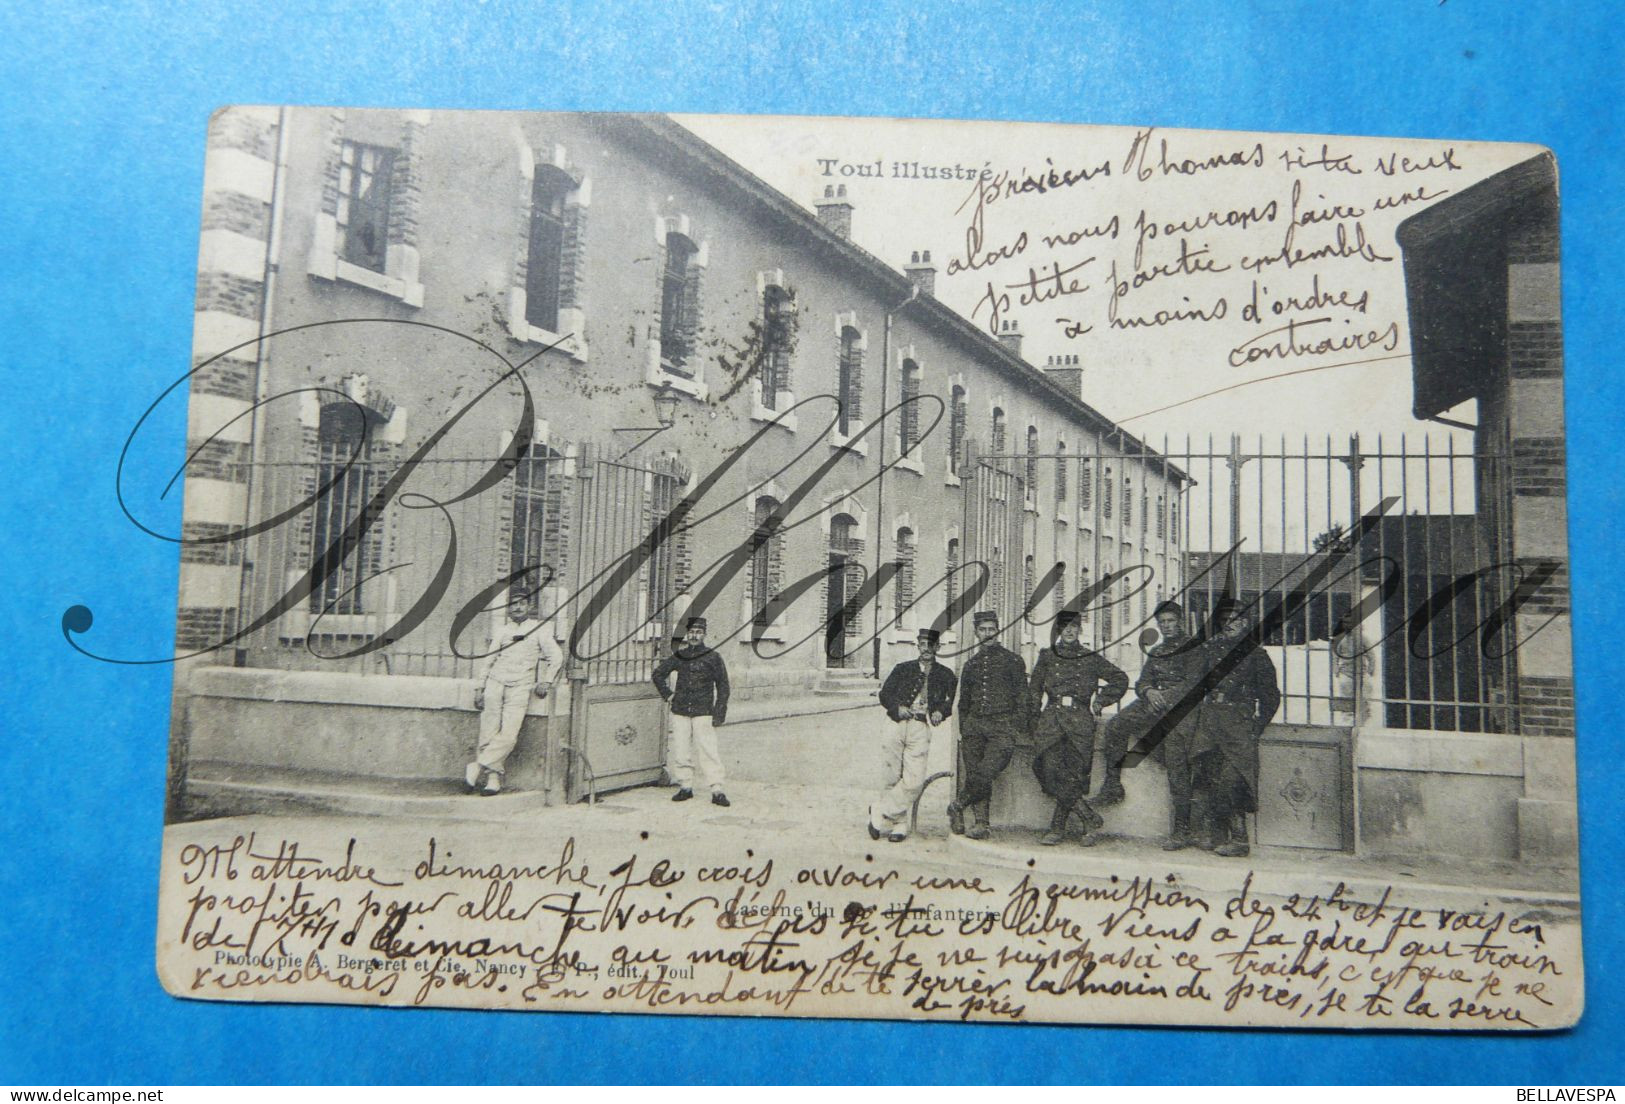 Toul illustré
préviens Thomas si tu veux
alors nous pourons faire une
petite partie ensemble
à moins d'ordres
contraires
Bellavespa
M'attendre dimanche, je crois avoir une permission de 24h et je vais en
profiter pour aller te voir, dépis si tu es libre viens à la gare, au train
Caserne du d'Infanterie
de 7H10 dimanche au matin, si je ne suis pas à ce trains, c'est que je ne
Phototypie A. Bergeret et Cie, Nancy P., édit., Toul
viendrais pas. En attendant de te serrer la main de près, je te la serre
de près
BELLAVESPA